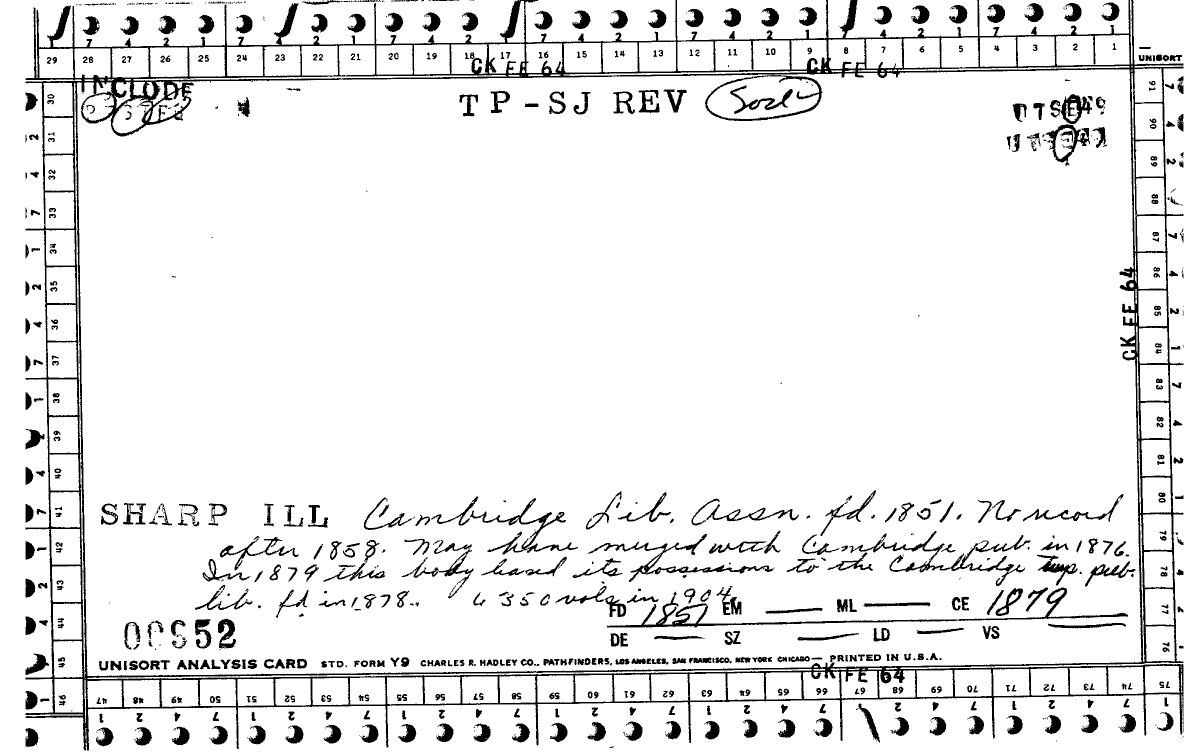 7 4 2 1 7 4 2 1 7 4 2 1 7 4 2 1 7 4 2 1 7 4 2 1 7 4 2 1
29 28 27 26 25 24 23 22 21 20 19 18 17 16 15 14 13 12 11 10 9 8 7 6 5 4 3 2 1
UNISORT
CK FE 64 CK FE 64
INCLUDE
TP-SJ REV
UTSE49
30 31 32 33 34 35 36 37 38 39 40 41 42 43 44 45 46
91 90 89 88 87 86 85 84 83 82 81 80 79 78 77 76 75
CK FE 64
SHARP ILL Cambridge Lib. Assn. fd. 1851. No record
after 1858. May have merged with Cambridge pub. in 1876.
In 1879 this body leased its possessions to the Cambridge twp. pub.
lib. fd in 1878.. 6350 vols in 1904.
FD 1851 EM — ML — CE 1879
00852
DE — SZ — LD — VS —
UNISORT ANALYSIS CARD STD. FORM Y9 CHARLES R. HADLEY CO., PATHFINDERS, LOS ANGELES, SAN FRANCISCO, NEW YORK CHICAGO — PRINTED IN U.S.A.
CK FE 64
47 48 49 50 51 52 53 54 55 56 57 58 59 60 61 62 63 64 65 66 67 68 69 70 71 72 73 74
1 2 4 7 1 2 4 7 1 2 4 7 1 2 4 7 1 2 4 7 1 2 4 7 1 2 4 7 1